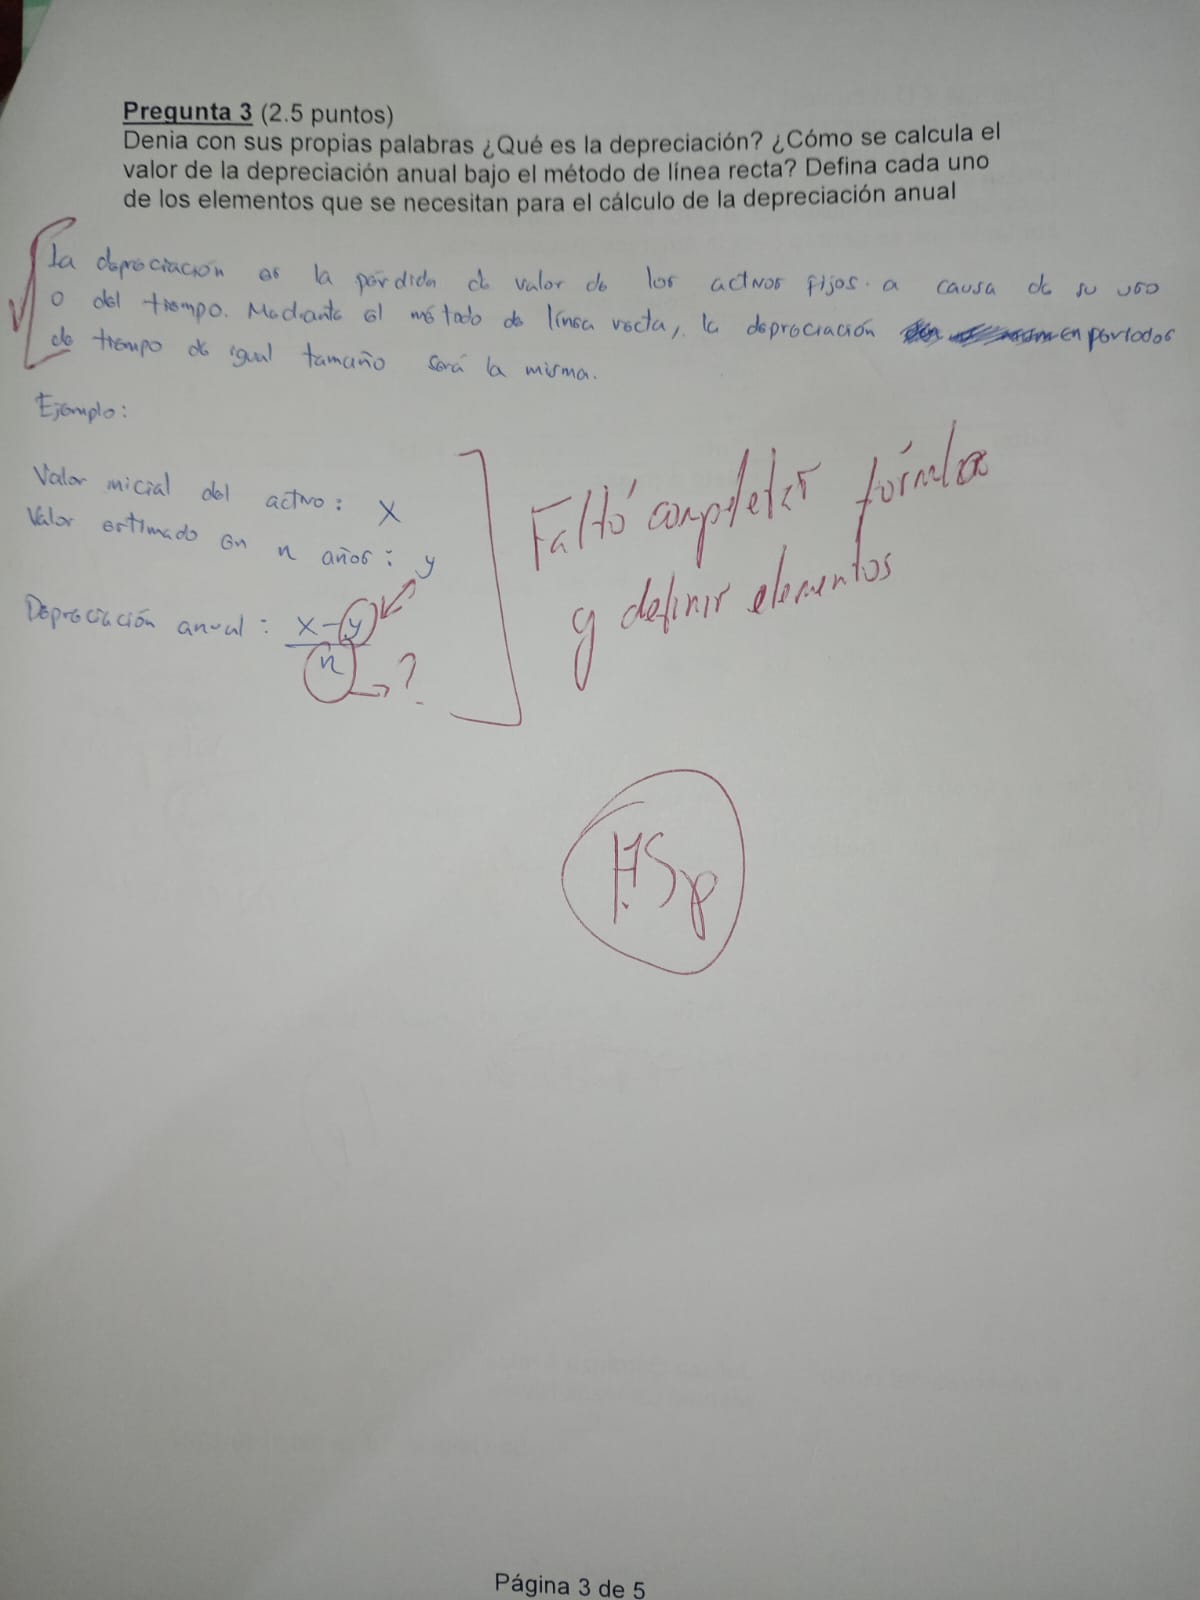 Pregunta 3 (2.5 puntos)
Denia con sus propias palabras ¿Qué es la depreciación? ¿Cómo se calcula el
valor de la depreciación anual bajo el método de línea recta? Defina cada uno
de los elementos que se necesitan para el cálculo de la depreciación anual
La depreciación es la pérdida de valor de los activos fijos a causa de su uso
o del tiempo. Mediante el método de línea recta, la depreciación en períodos
de tiempo de igual tamaño será la misma.
Ejemplo:
Valor inicial del activo: x
Valor estimado en n años: y
Depreciación anual: x-y
n
?
Faltó completar fórmula
y definir elementos
Página 3 de 5